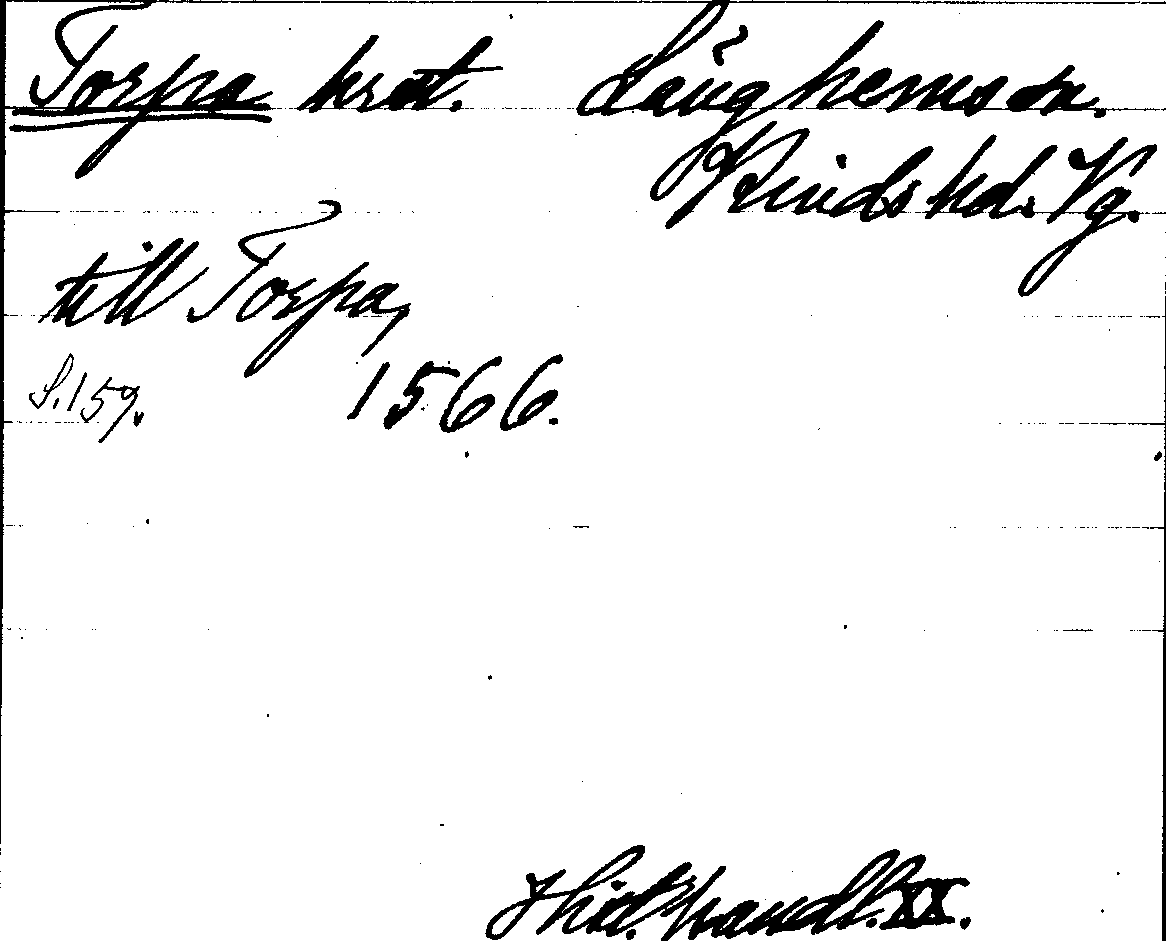 Torpa hrst. Långhems sn.
Kinds hd. Vg.
till Torpa,
S. 159. 1566.
Hist. handl. XX.